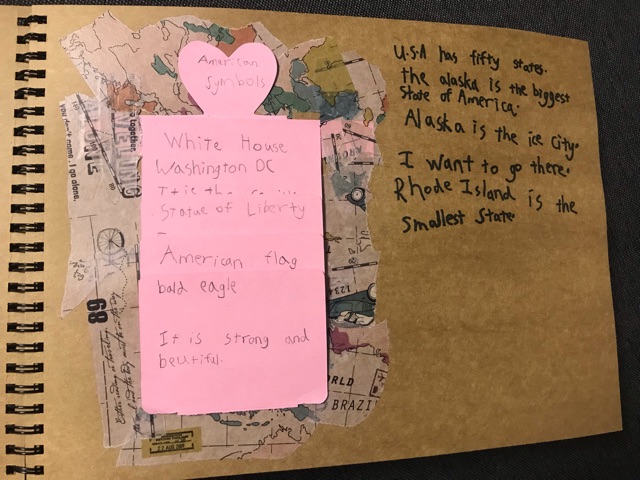 American
Symbols
White House
Washington DC
Statue of Liberty
American flag
bald eagle
It is strong and
beutiful.
U.S.A has fifty states.
the alaska is the biggest
State of America.
Alaska is the ice City.
I want to go there.
Rhode Island is the
smallest State.
together.
89
1234
WORLD
BRAZI